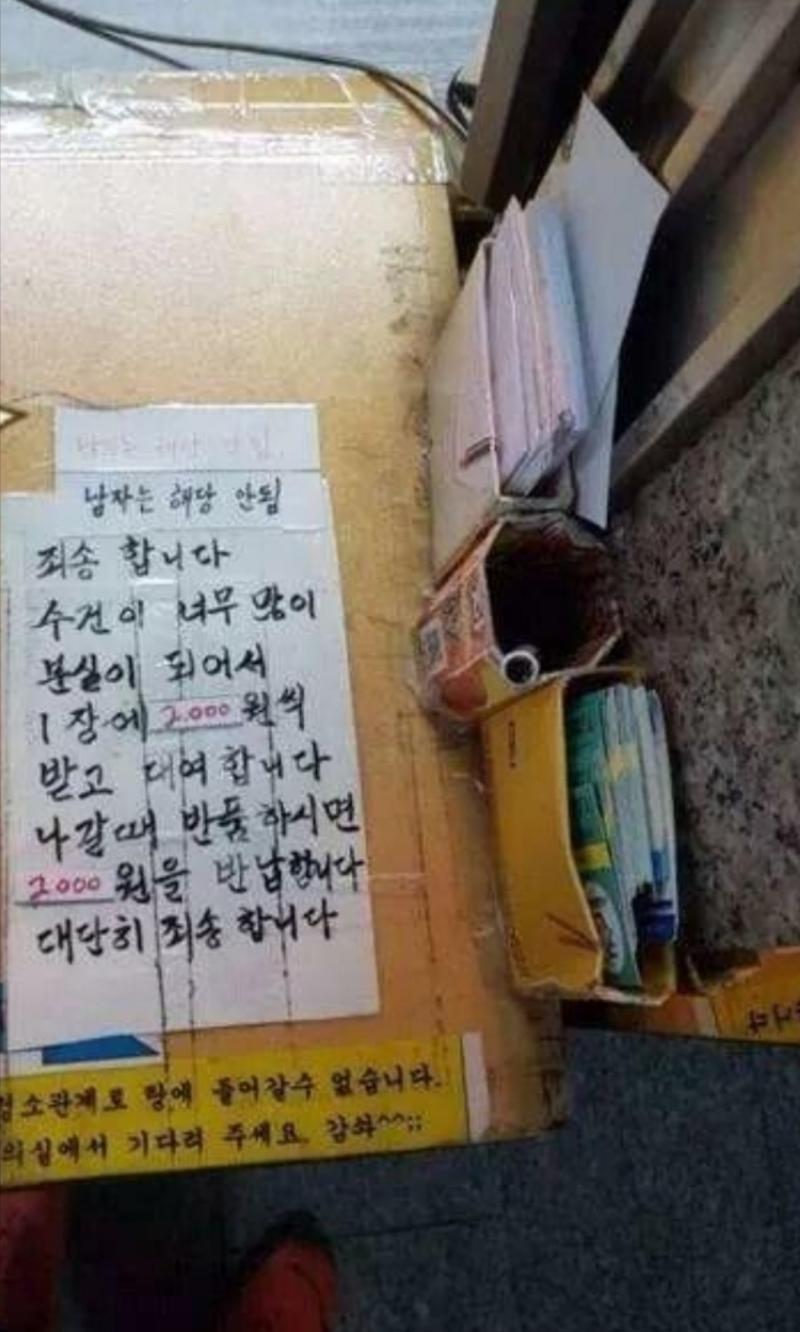 남자는 해당 안됨
남자는 해당 안됨
죄송 합니다
수건이 너무 많이
분실이 되어서
1장에 2.000 원씩
받고 대여 합니다
나갈때 반품 하시면
2000 원을 반납합니다
대단히 죄송 합니다
소관계로 탕에 들어갈수 없습니다.
의실에서 기다려 주세요. 감솨^^;;
니다